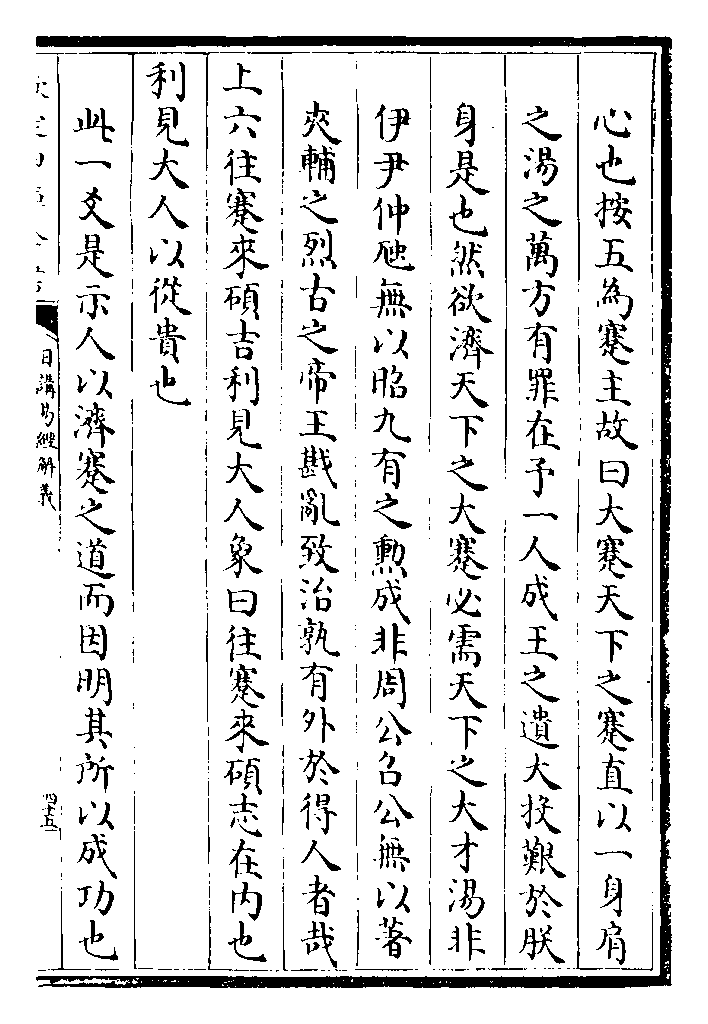 心也按五為蹇主故曰大蹇天下之蹇直以一身肩
之湯之萬方有罪在予一人成王之遺大投艱於朕
身是也然欲濟天下之大蹇必需天下之大才湯非
伊尹仲虺無以昭九有之勲成非周公召公無以著
夾輔之烈古之帝王戡亂致治孰有外於得人者哉
上六往蹇來碩吉利見大人象曰往蹇來碩志在内也
利見大人以從貴也
此一爻是示人以濟蹇之道而因明其所以成功也
日講易經解義
四十五